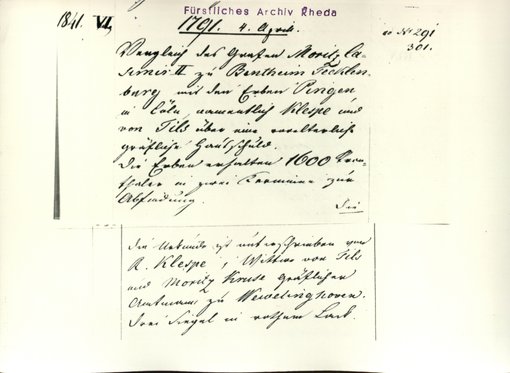 Fürstliches Archiv Rheda
1841. VI,
1791. 4. April.
ao No 291
301.
Vergleich des Grafen Moritz Ca-
simir II zu Bentheim Tecklen-
burg mit den Erben Pingen
in Cöln, namentlich Klespe und
von Fils über eine vorelterliche
gräfliche Hausschuld.
Die Erben erhalten 1600 Kron-
thaler in zwei Termine zur
Abfindung.
Die
die Urkunde ist unterschrieben von
R. Klespe, Wittwe von Fils
und Moritz Kruse gräflicher
Amtmann zu Wevelinghoven.
Drei Siegel in rothem Lack.